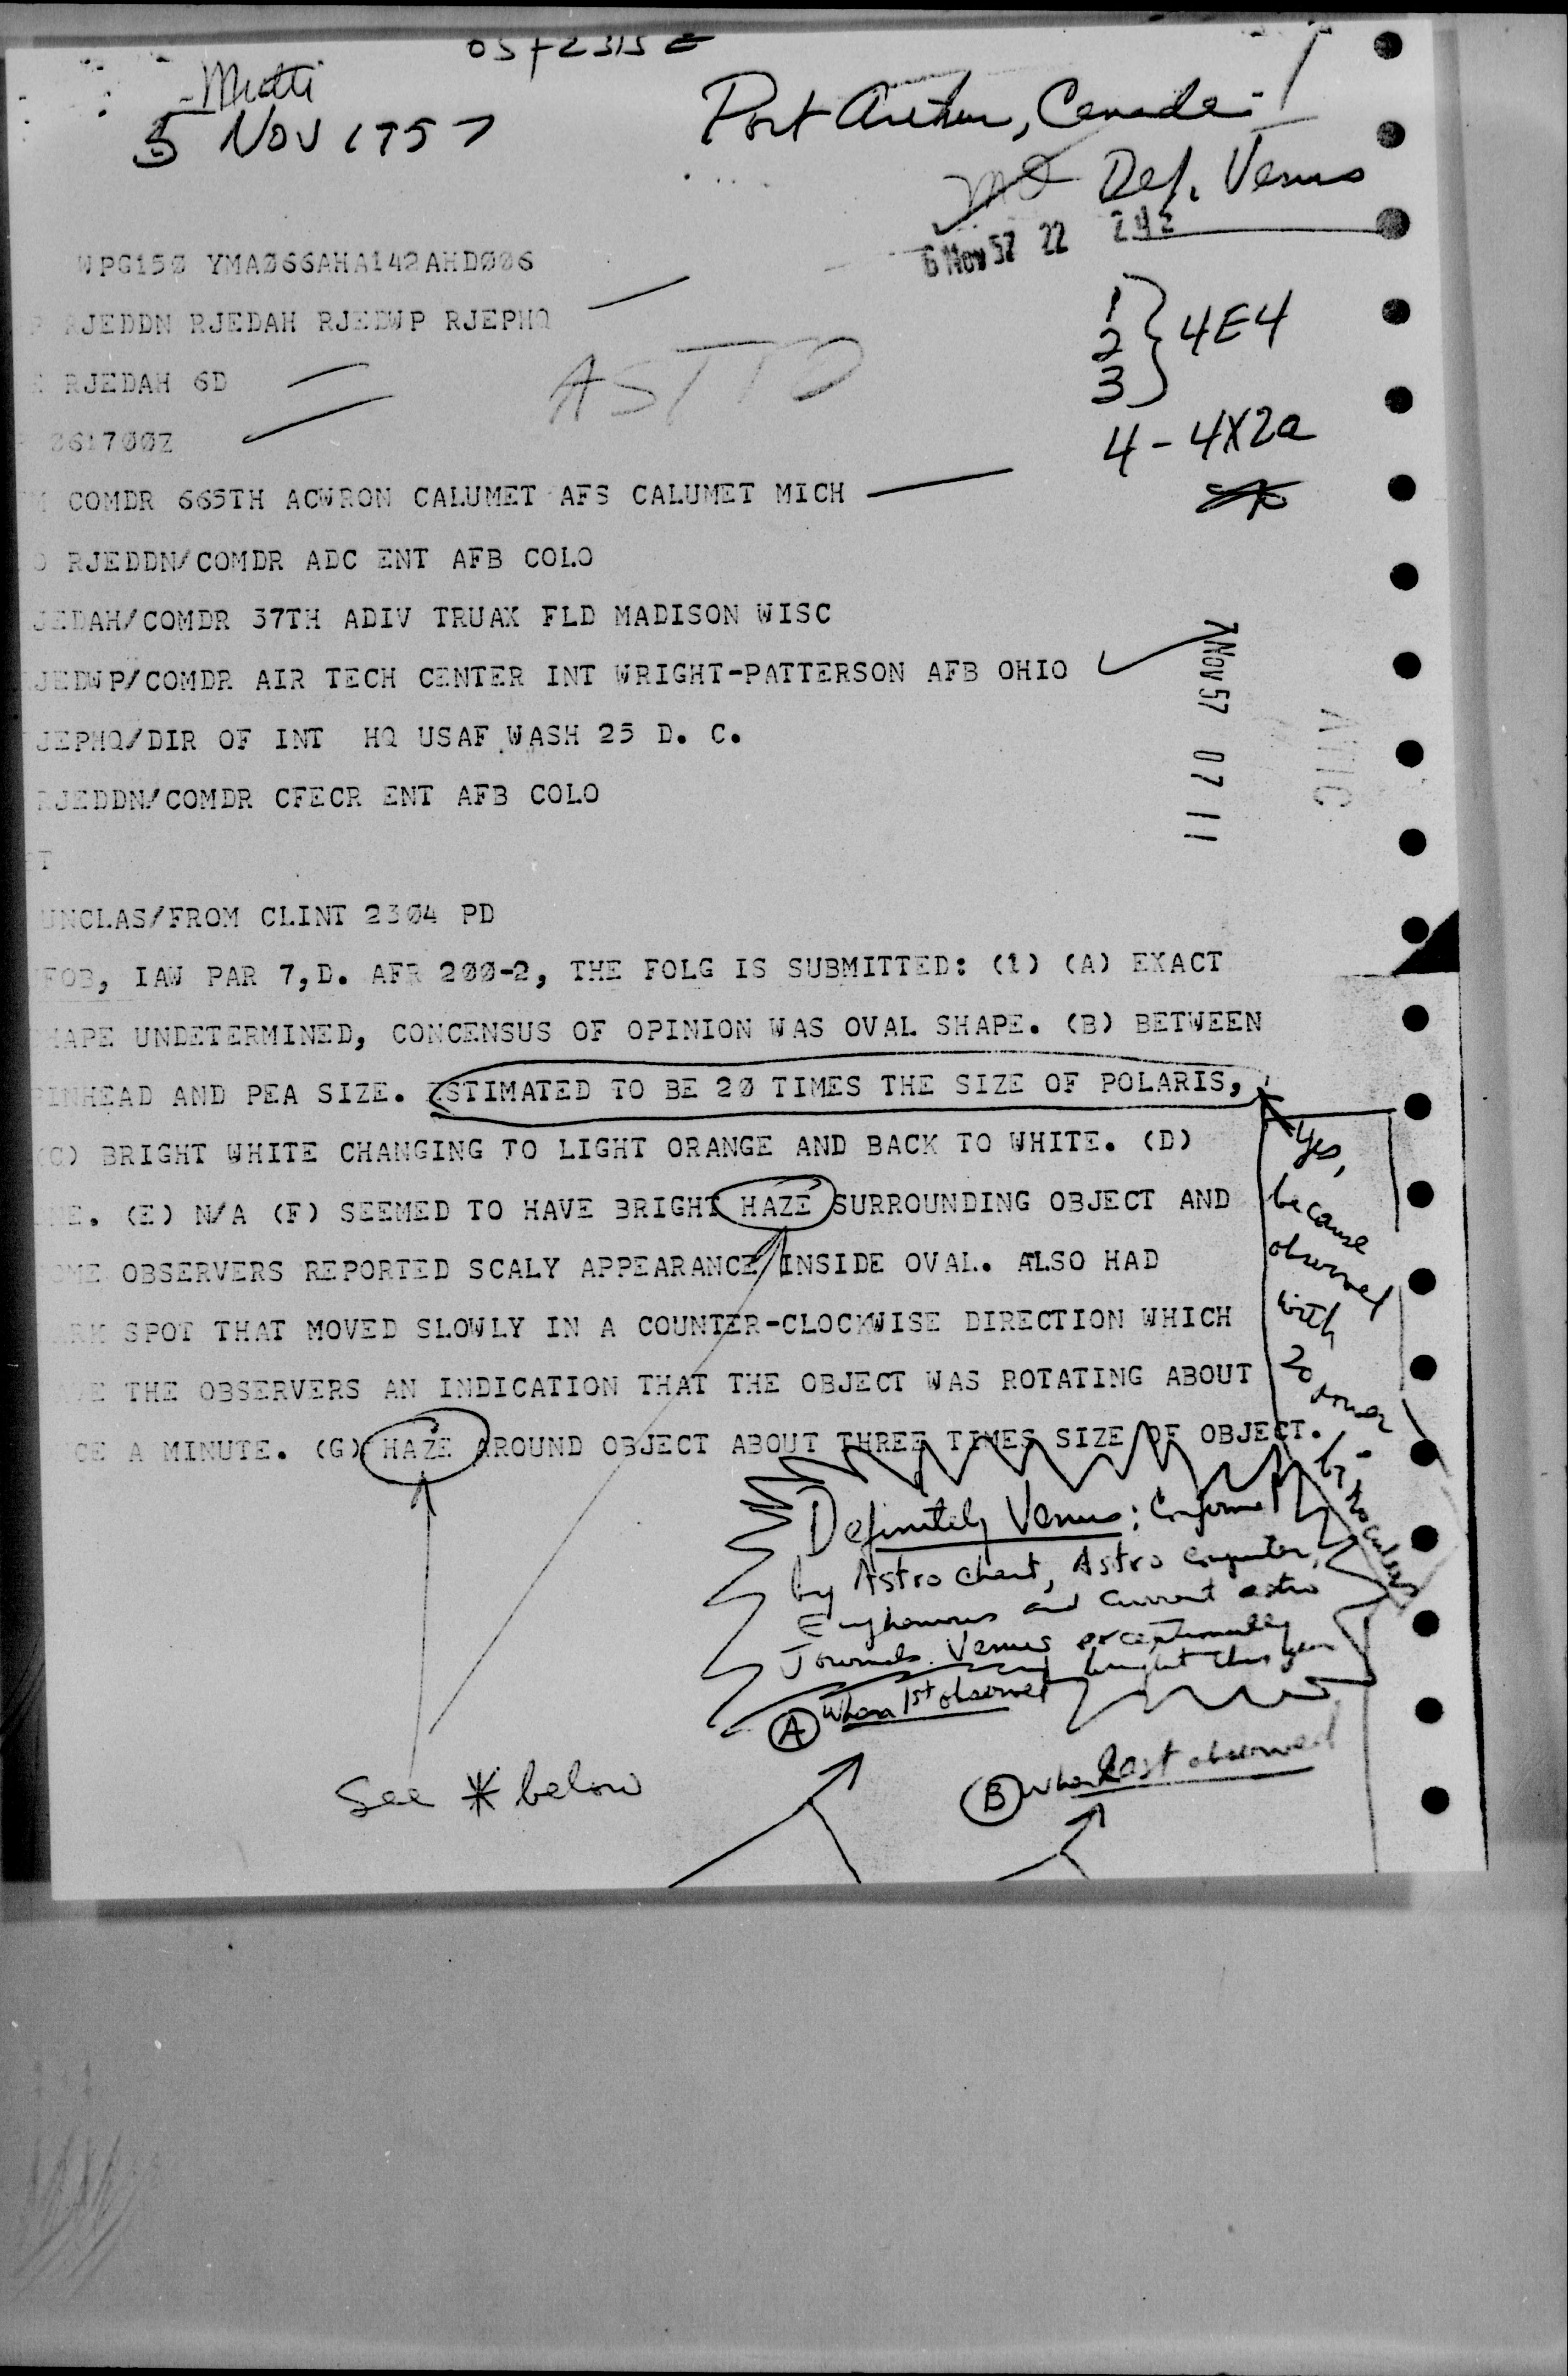 05/2315Z
Multi
5 NOV 1957
Port Arthur, Canada
Def. Venus
6 Nov 57 22 24Z
WPG150 YMA066AHA142AHD006
RJEDDN RJEDAH RJEDWP RJEPHQ
RJEDAH 6D
ASTRO
061700Z
1
2 } 4E4
3
4 - 4X2a
COMDR 665TH ACWRON CALUMET AFS CALUMET MICH
RJEDDN/COMDR ADC ENT AFB COLO
JEDAH/COMDR 37TH ADIV TRUAX FLD MADISON WISC
JEDWP/COMDR AIR TECH CENTER INT WRIGHT-PATTERSON AFB OHIO
JEPHQ/DIR OF INT HQ USAF WASH 25 D. C.
RJEDDN/COMDR CFECR ENT AFB COLO
7 Nov 57 07 11
ATIC
T
UNCLAS/FROM CLINT 2304 PD
FOB, IAW PAR 7,D. AFR 200-2, THE FOLG IS SUBMITTED: (1) (A) EXACT
HAPE UNDETERMINED, CONCENSUS OF OPINION WAS OVAL SHAPE. (B) BETWEEN
PINHEAD AND PEA SIZE. ESTIMATED TO BE 20 TIMES THE SIZE OF POLARIS,
(C) BRIGHT WHITE CHANGING TO LIGHT ORANGE AND BACK TO WHITE. (D)
NE. (E) N/A (F) SEEMED TO HAVE BRIGHT HAZE SURROUNDING OBJECT AND
OME OBSERVERS REPORTED SCALY APPEARANCE INSIDE OVAL. ALSO HAD
RK SPOT THAT MOVED SLOWLY IN A COUNTER-CLOCKWISE DIRECTION WHICH
VE THE OBSERVERS AN INDICATION THAT THE OBJECT WAS ROTATING ABOUT
CE A MINUTE. (G) HAZE AROUND OBJECT ABOUT THREE TIMES SIZE OF OBJECT.
Yes,
because
observed
with
20 power
binoculars
Definitely Venus; Confirmed
by Astro chart, Astro computer,
and current astro
Journals. Venus exceptionally
bright this year
(A) When 1st observed
(B) When last observed
See * below